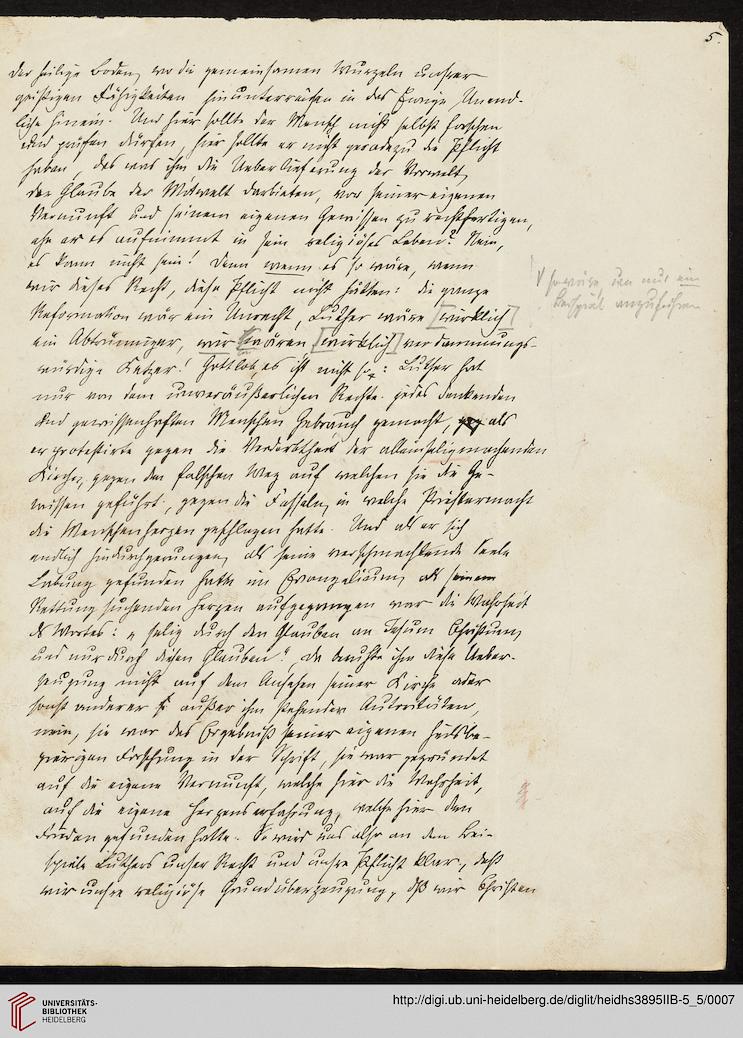 5.
der heilige Boden, wo die gemeinsamen Wurzeln unserer
geistigen Fähigkeiten hinunterreichen in das Ewige Unend-
liche hinein. Und hier sollte der Mensch nicht selbst forschen
und prüfen dürfen, hier sollte er nicht geradezu die Pflicht
haben, das was ihm die Ueberlieferung der Vorwelt,
der Glaube der Mitwelt darbieten, vor seiner eigenen
Vernunft und seinem eigenen Gewissen zu rechtfertigen,
ehe er es aufnimmt in sein religiöses Leben? Nein,
es kann nicht sein! Denn wenn es so wäre, wenn
wir dieses Recht, diese Pflicht nicht hätten: die ganze
Reformation wär ein Unrecht, Luther wäre [wirklich]
ein Abtrünniger, wir wären [wirklich] verdammungs-
würdige Ketzer! Gottlob, es ist nicht so: Luther hat
nur von dem unveräußerlichen Rechte jedes denkenden
und gewissenhaften Menschen Gebrauch gemacht, als
er protestirte gegen die Verderbtheit der alleinseligmachenden
Kirche, gegen den falschen Weg auf welchen sie die Ge-
wissen geführt, gegen die Fesseln, in welche Priestermacht
die Menschenherzen geschlagen hatte. Und als er sich
endlich hindurchgerungen, als seine verschmachtende Seele
Labung gefunden hatte im Evangelium, als seinem
Rettung suchenden Herzen aufgegangen war die Wahrheit
des Wortes: „selig durch den Glauben an Jesum Christum,
und nur durch diesen Glauben“. Da beruhte ihm diese Ueber-
zeugung nicht auf dem Ansehen seiner Kirche oder
sonst anderer außer ihm stehender Autoritäten,
nein, sie war das Ergebniß seiner eigenen heilsbe-
gierigen Forschung in der Schrift, sie war gegründet
auf die eigene Vernunft, welche hier die Wahrheit,
auf die eigene Herzenserfahrung, welche hier den
Frieden gefunden hatte. So wird uns also an dem Bei-
spiele Luthers unser Recht und unsre Pflicht klar, daß
wir unsre religiöse Grundüberzeugung, daß wir Christen
um nur ein
Beispiel anzuführen
UNIVERSITÄTS-
BIBLIOTHEK
HEIDELBERG
http://digi.ub.uni-heidelberg.de/diglit/heidhs3895IIB-5_5/0007